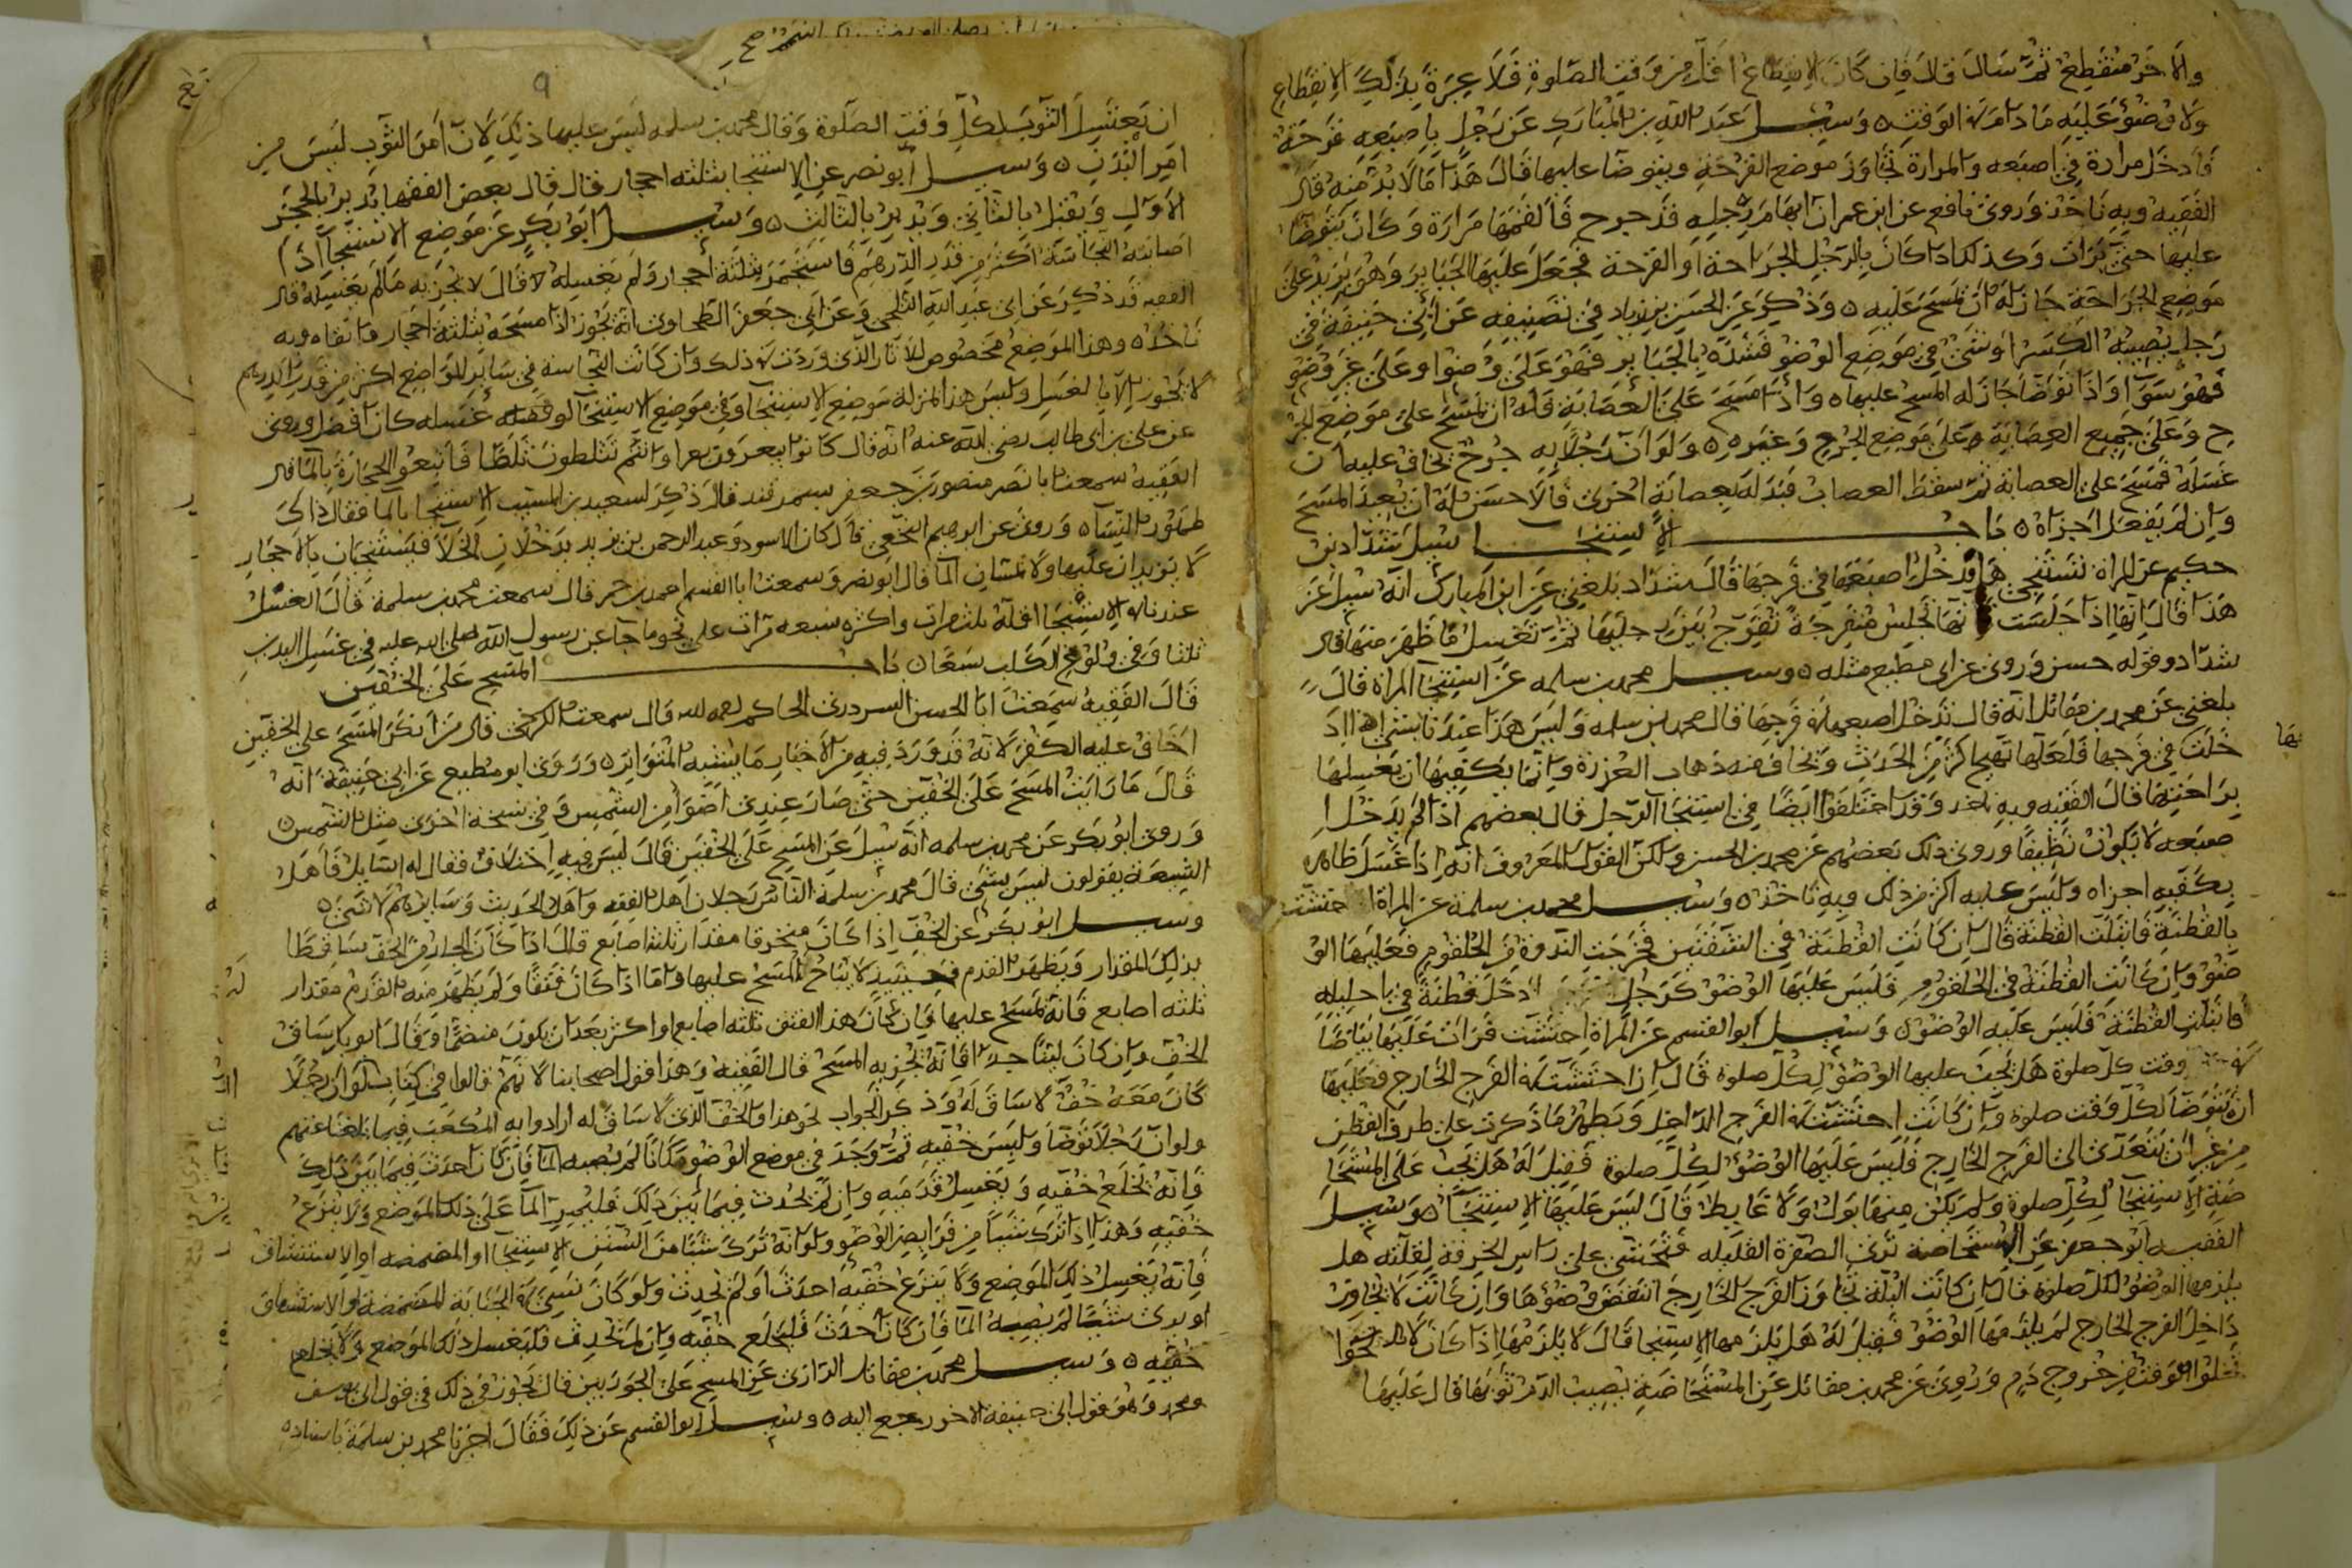 والاخر منقطع ثم سال قال فان كان الانقطاع اقل من وقت الصلوة فلا عبرة بذلك الانقطاع
ولا وضوء عليه ما دام في الوقت ٥ وسيل عبد الله بن المبارك عن رجل باصبعه قرحة
فادخل مرارة في اصبعه والمرارة تجاوز موضع القرحة ويتوضا عليها قال هذا ما لا بد منه قال
الفقيه وبه ناخذ وروى نافع عن ابن عمر ان ابهام رجله قد جرح فالقمها مرارة وكان يتوضا
عليها حتى برات وكذلك اذا كان بالرجل الجراحة او القرحة فجعل عليها الجباير وهو يزيد على
موضع الجراحة جاز له ان يمسح عليه ٥ وذكر عن الحسن بن زياد في تصنيفه عن ابي حنيفة في
رجل يصيبه الكسر او شئ في موضع الوضو فشده بالجباير فهو على وضوا وعلى غير وضو
فهو سوآ واذا توضا جاز له المسح عليها ٥ واذا مسح على العصابة فله ان يمسح على موضع الجر
ح وعلى جميع العصابة على موضع الجرح وغيره ٥ ولو ان رجلا به جرح يخاف عليه ان
غسله فمسح على العصابة ثم سقط العصاب فبدله بعصابة اخرى فالاحسن له ان يعيد المسح
وان لم يفعل اجزاه ٥ باب الاستنجا سيل شداد بن
حكيم عن المراة تستنجي هل تدخل اصبعها في فرجها قال شداد بلغني عن ابن المبارك انه سيل عن
هذا قال انها اذا جلست فانها تجلس منفرجة تفرج بين رجليها ثم تغسل ما ظهر منها قال
شداد وقوله حسن وروى عن ابي مطيع مثله ٥ وسيل محمد بن سلمه عن استنجا المراة قال
بلغني عن محمد بن مقاتل انه قال تدخل اصبعها في فرجها قال محمد بن سلمه وليس هذا عندنا بشئ لانها اذا اد
خلت في فرجها فلعلها تهيج اكثر من الحدث ويخاف منه ذهاب العزرة وانما يكفيها ان تغسلها
بها
براحتها قال الفقيه وبه ناخذ وقد اختلفوا ايضا في استنجا الرجل قال بعضهم اذا لم يدخل ا
صبعه لا يكون نظيفا وروى ذلك بعضهم عن محمد بن الحسن ولكن القول المعروف انه اذا غسل ظاهره
بكفيه اجزاه وليس عليه اكثر من ذلك وبه ناخذ ٥ وسيل محمد بن سلمة عن المراة احتشت
بالقطنة فابتلت القطنة قال ان كانت القطنة في الشفتين فخرجت الندوة من الحلقوم فعليها الو
ضو وان كانت القطنة في الحلقوم فليس عليها الوضو كرجل ادخل قطنة في احليله
فابتلت القطنة فليس عليه الوضو ٥ وسيل ابو القسم عن المراة احتشت فرات عليها بياضا
وقت كل صلوة هل يجب عليها الوضو لكل صلوة قال ان احتشت في الفرج الخارج فعليها
ان تتوضا لكل وقت صلوة وان كانت احتشت في الفرج الداخل ويظهر ما ذكرت على طرف القطن
من غير ان يتعدى الى الفرج الخارج فليس عليها الوضو لكل صلوة فقيل له هل يجب على المستحا
ضة الاستنجآ لكل صلوة ولم يكن منها بول ولا غايط قال ليس عليها الاستنجآ ٥ وسيل
الفقيه ابو جعفر عن المستحاضة ترى الصفرة القليله فتحتشي على راس الخرقة لقلته هل
يلزمها الوضو لكل صلوة قال ان كانت البلة تجاوز الفرج الخارج انتقض وضوها وان كانت لا تجاوز
داخل الفرج الخارج لم يلزمها الوضو فقيل له هل يلزمها الاستنجا قال لا يلزمها اذا كان لا
تخلوا الوقت من خروج دم وروى عن محمد بن مقاتل عن المستحاضة يصيب الدم ثوبها قال عليها
ان تغتسل الثوب لكل وقت الصلوة وقال محمد بن سلمه ليس عليها ذلك لان امر الثوب ليس من
امر البدن ٥ وسيل ابو نصر عن الاستنجا بثلثه احجار قال قال بعض الفقها يدبر بالحجر
الاول ويقبل بالثاني ويدبر بالثالث ٥ وسيل ابو بكر عن موضع الاستنجآ اذا
اصابته النجاسة اكثر من قدر الدرهم فاستجمر بثلثة احجار ولم يغسله قال لا يجزيه ما لم يغسله قال
الفقيه قد ذكر عن ابي عبد الله الثلجي وعن ابي جعفر الطحاوى انه يجوز اذا مسحه بثلثه احجار وانقاه وبه
ناخذ ٥ وهذا الموضع مخصوص للاثار الذى وردت في ذلك وان كانت النجاسة في ساير المواضع اكثر من قدر الدرهم
لا يجوز الا بالغسل وليس هذا المنزلة موضع الاستنجآ وفي موضع الاستنجآ لو غسله كان افضل وروى
عن علي بن ابي طالب رضي الله عنه انه قال كانوا يبعرون بعرا وانتم تثلطون ثلطا فاتبعوا الحجارة بالما قال
الفقيه سمعت ابا نصر منصور بن جعفر بسمرقند قال ذكر لسعيد بن المسيب الاستنجا بالما فقال ذاك
طهور النسآ ٥ وروى عن ابرهيم النخعي قال كان الاسود وعبد الرحمن بن يزيد يدخلان الخلآ فيستنجيان بالاحجار
لا يزيدان عليها ولا يمسان المآ قال ابو نصر وسمعت ابا القسم احمد بن حم قال سمعت محمد بن سلمة قال الغسل
عندنا في الاستنجا اقله ثلث مرات واكثره سبعه مرات على نحو ما جآ عن رسول الله صلى الله عليه في غسل اليدين
ثلثا وفي ولوغ الكلب سبعا ٥ باب المسح على الخفين
قال الفقيه سمعت ابا الحسن السردرى الحاكم رحمه الله قال سمعت الكرخي قال من انكر المسح على الخفين
اخاف عليه الكفر لانه قد ورد فيه من الاخبار ما يشبه المتواتر ٥ وروى ابو مطيع عن ابي حنيفة انه
قال ما رايت المسح على الخفين حتى صار عندى اضوا من الشمس وفي نسخة اخرى مثل الشمس ٥
وروى ابو بكر عن محمد بن سلمه انه سيل عن المسح على الخفين قال ليس فيه اختلاف فقال له السايل فاهل
الشيعة يقولون ليس بشئ قال محمد بن سلمة الناس رجلان اهل الفقه واهل الحديث وسايرهم لا شئ ٥
وسيل ابو بكر عن الخف اذا كان منخرقا مقدار ثلثه اصابع قال اذا كان الخارق من الخف ساقطا
بذلك المقدار ويظهر القدم فحينيذ لا يباح المسح عليها واما اذا كان فتقا ولم يظهر منه القدم مقدار
ثلثه اصابع فانه يمسح عليها وان كان هذا الفتق ثلثه اصابع او اكثر بعد ان يكون منضما وقال ابو بكر ساق
الخف وان كان لينا جدا فانه يجزيه المسح قال الفقيه وهذا قول اصحابنا لانهم قالوا في كتاب لو ان رجلا
كان معه خف لا ساق له وذكر الجواب نحو هذا والخف الذى لا ساق له ارادوا به المكعب فيما بلغنا عنهم
ولو ان رجلا توضا ولبس خفيه ثم وجد في موضع الوضو مكانا لم يصبه المآ فان كان احدث فيما بين ذلك
فانه يخلع خفيه ويغسل قدميه وان لم يحدث فيما بين ذلك فليمر المآ على ذلك الموضع ولا ينزع
خفيه وهذا اذا ترك شيا من فرايض الوضو ولو انه ترك شيا من السنن الاستنجآ او المضمضه او الاستنشاق
فانه يغسل ذلك الموضع ولا ينزع خفيه احدث او لم يحدث ولو كان نسي في الجنابة المضمضة او الاستنشاق
او يدى شيا لم يصبه المآ فان كان احدث فليخلع خفيه وان لم يحدث فليغسل ذلك الموضع ولا يخلع
خفيه ٥ وسيل محمد بن مقاتل الرازى عن المسح على الجوربين قال يجوز في ذلك في قول ابي يوسف
ومحمد وهو قول ابي حنيفة الاخر رجع اليه ٥ وسيل ابو القسم عن ذلك فقال اخبرنا محمد بن سلمة باسناده